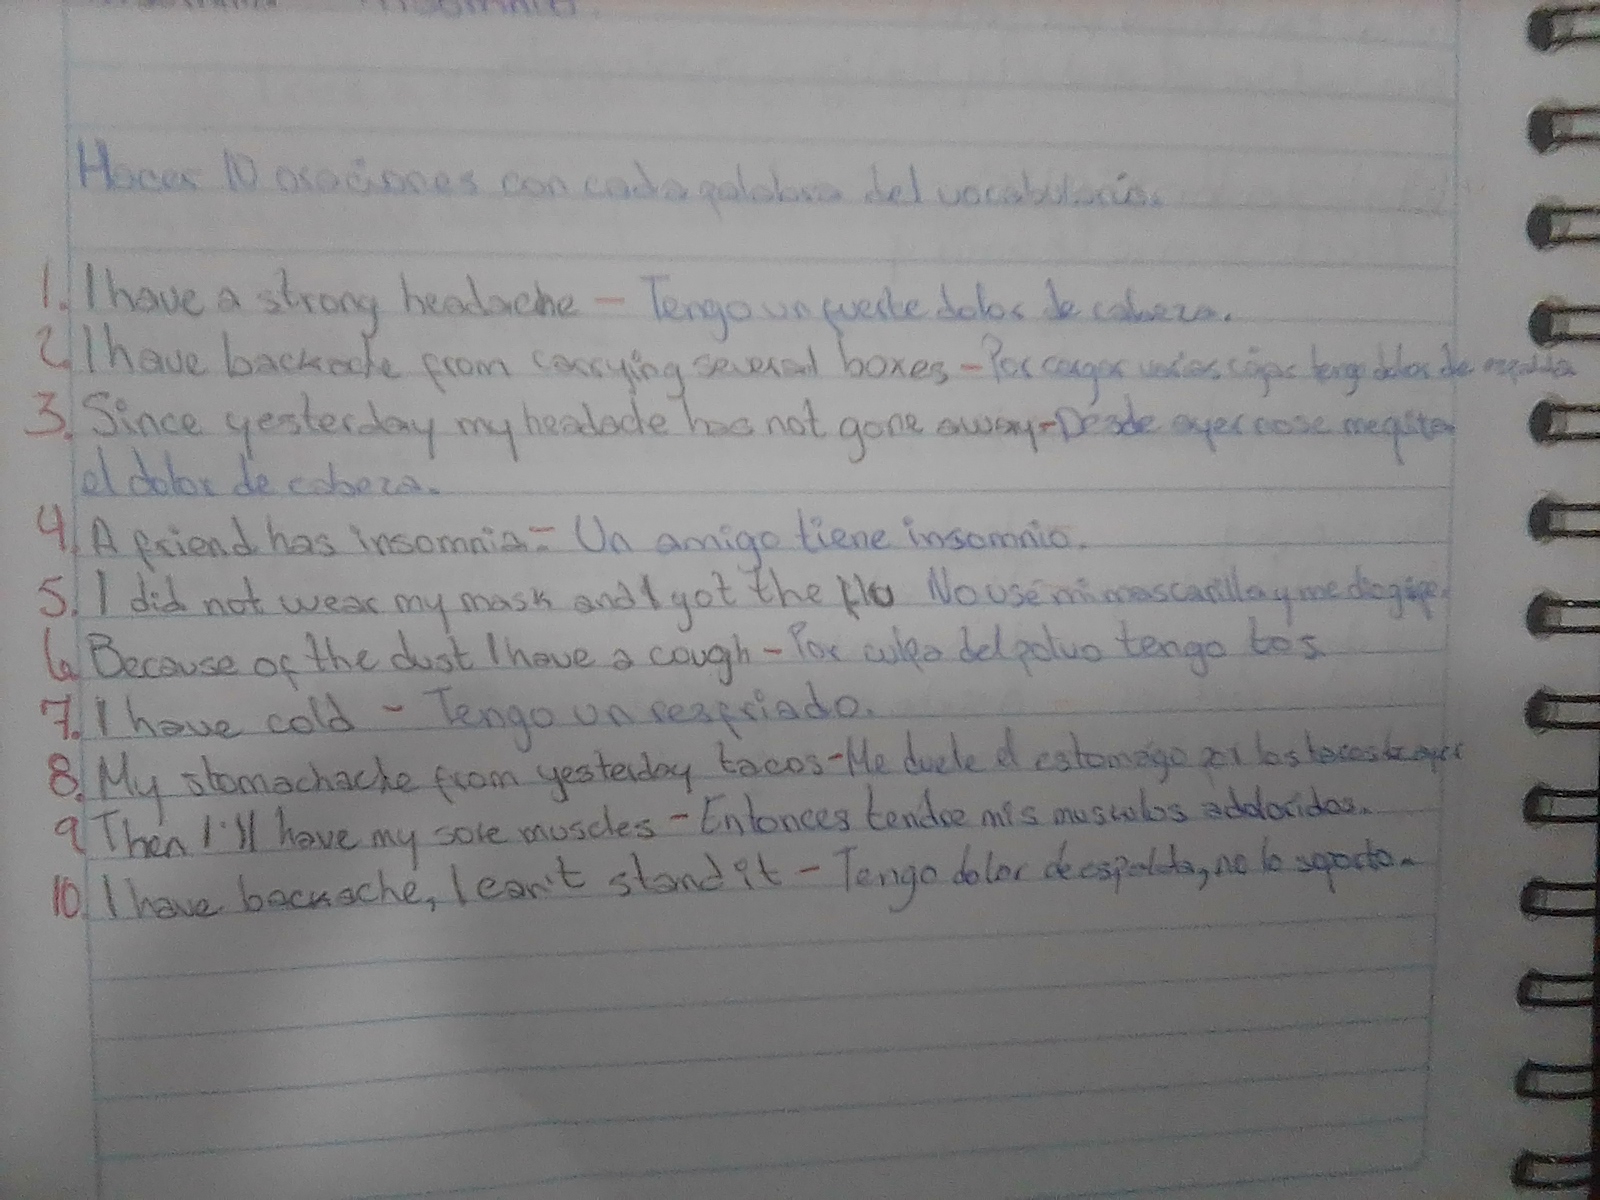 Insomnia
Hacer 10 oraciones con cada palabra del vocabulario.
1. I have a strong headache - Tengo un fuerte dolor de cabeza.
2. I have backache from carrying several boxes - Por cargar varias cajas tengo dolor de espalda
3. Since yesterday my headache has not gone away - Desde ayer no se me quita
el dolor de cabeza.
4. A friend has insomnia - Un amigo tiene insomnio.
5. I did not wear my mask and I got the flu No use mi mascarilla y me dio gripe.
6. Because of the dust I have a cough - Por culpa del polvo tengo tos
7. I have cold - Tengo un resfriado.
8. My stomachache from yesterday tacos - Me duele el estomago por los tacos de ayer
9. Then I'll have my sore muscles - Entonces tendre mis musculos adoloridos.
10. I have backache, I can't stand it - Tengo dolor de espalda, no lo soporto.